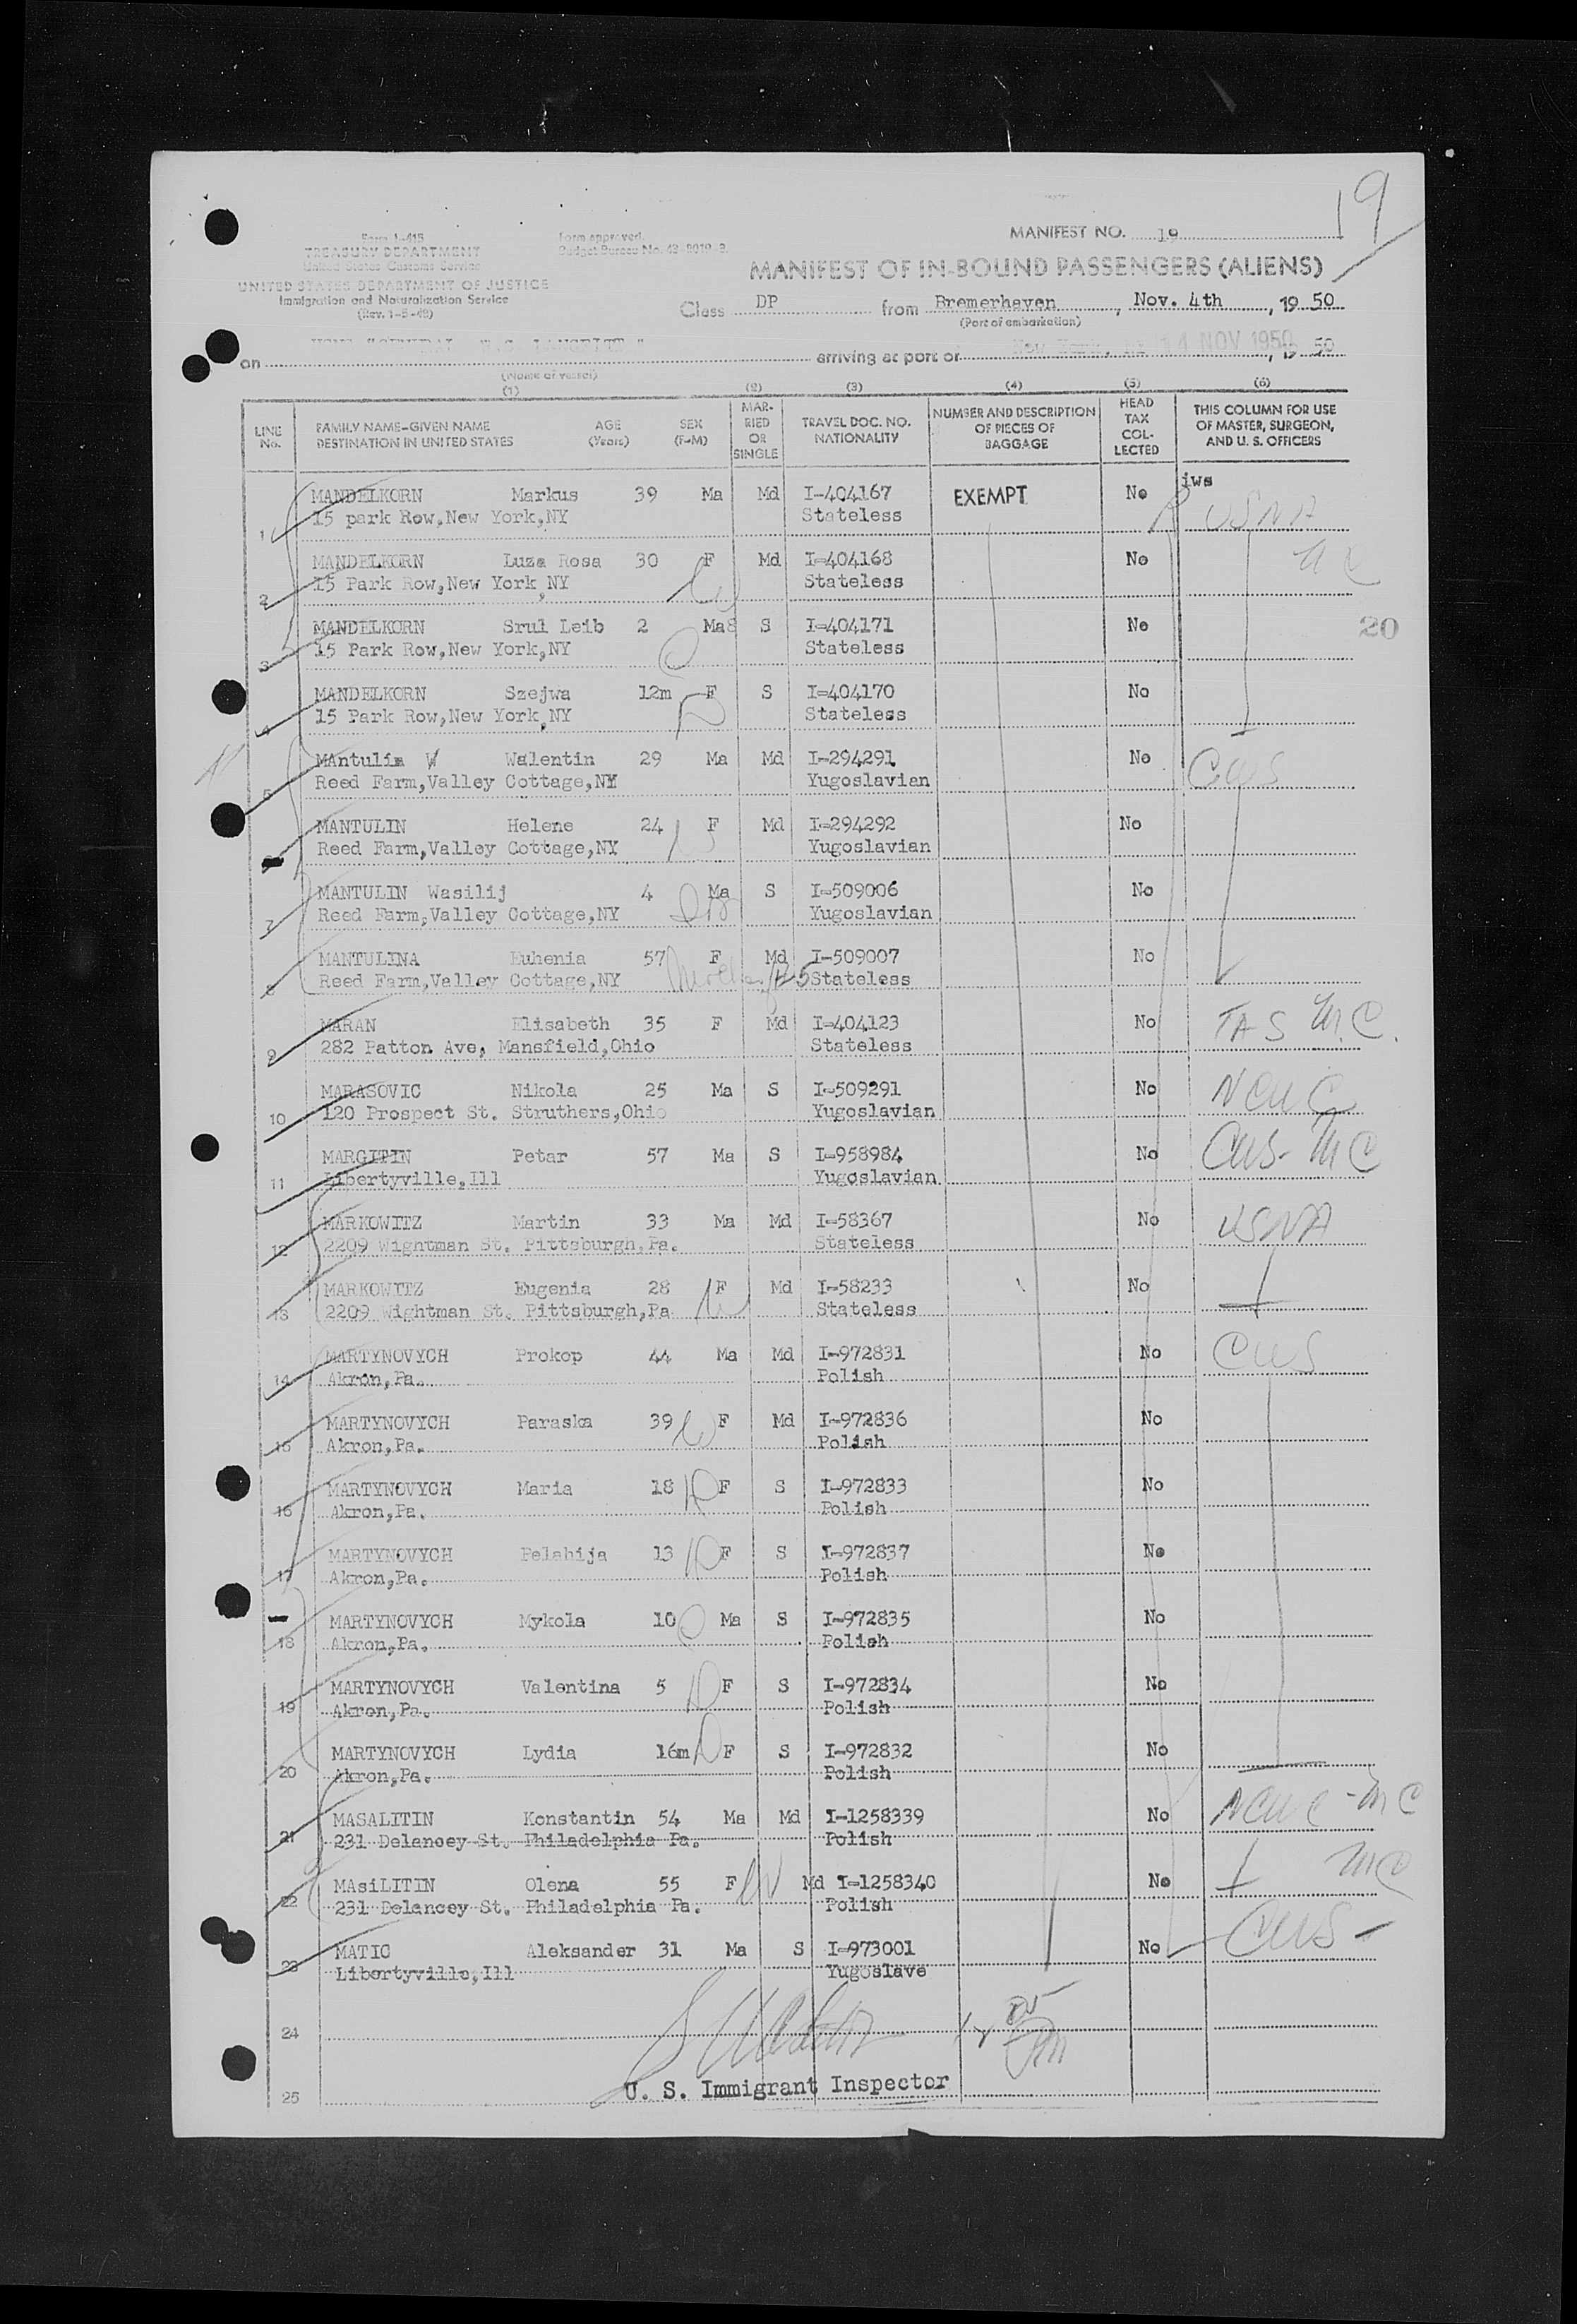 19
Form I-415
TREASURY DEPARTMENT
United States Customs Service
UNITED STATES DEPARTMENT OF JUSTICE
Immigration and Naturalization Service
(Rev. 1-5-49)
Form approved.
Budget Bureau No. 43-R019-3.
MANIFEST NO. 19
MANIFEST OF IN-BOUND PASSENGERS (ALIENS)
Class DP from Bremerhaven, Nov. 4th, 19 50
(Port of embarkation)
on arriving at port of 14 NOV 1950, 19 50
(Name of vessel)
(1) (2) (3) (4) (5) (6)
LINE No. FAMILY NAME—GIVEN NAME DESTINATION IN UNITED STATES AGE (Years) SEX (F-M) MARRIED OR SINGLE TRAVEL DOC. NO. NATIONALITY NUMBER AND DESCRIPTION OF PIECES OF BAGGAGE HEAD TAX COLLECTED THIS COLUMN FOR USE OF MASTER, SURGEON, AND U. S. OFFICERS
MANDELKORN Markus 39 Ma Md I-404167 EXEMPT No jws
1 15 park Row,New York,NY Stateless USNA
MANDELKORN Luza Rosa 30 F Md I-404168 No
2 15 Park Row,New York,NY Stateless
MANDELKORN Srul Leib 2 Ma S I-404171 No 20
3 15 Park Row,New York,NY Stateless
MANDELKORN Szejwa 12m F S I-404170 No
4 15 Park Row,New York,NY Stateless
MAntulin W Walentin 29 Ma Md I-294291 No
5 Reed Farm,Valley Cottage,NY Yugoslavian CWS
MANTULIN Helene 24 F Md I-294292 No
6 Reed Farm,Valley Cottage,NY Yugoslavian
MANTULIN Wasilij 4 Ma S I-509006 No
7 Reed Farm,Valley Cottage,NY Yugoslavian
MANTULINA Euhenia 57 F Md I-509007 No
8 Reed Farm,Valley Cottage,NY Stateless
MARAN Elisabeth 35 F Md I-404123 No TAS MC
9 282 Patton Ave, Mansfield,Ohio Stateless
MARASOVIC Nikola 25 Ma S I-509291 No NCWC
10 120 Prospect St. Struthers,Ohio Yugoslavian
MARGITIN Petar 57 Ma S I-958984 No CWS- MC
11 Libertyville,Ill Yugoslavian
MARKOWITZ Martin 33 Ma Md I-58367 No USNA
12 2209 Wightman St. Pittsburgh,Pa. Stateless
MARKOWITZ Eugenia 28 F Md I-58233 No
13 2209 Wightman St. Pittsburgh,Pa Stateless
MARTYNOVYCH Prokop 44 Ma Md I-972831 No CWS
14 Akron,Pa. Polish
MARTYNOVYCH Paraska 39 F Md I-972836 No
15 Akron,Pa. Polish
MARTYNOVYCH Maria 18 F S I-972833 No
16 Akron,Pa. Polish
MARTYNOVYCH Pelahija 13 F S I-972837 No
17 Akron,Pa. Polish
MARTYNOVYCH Mykola 10 Ma S I-972835 No
18 Akron,Pa. Polish
MARTYNOVYCH Valentina 5 F S I-972834 No
19 Akron,Pa. Polish
MARTYNOVYCH Lydia 16m F S I-972832 No
20 Akron,Pa. Polish
MASALITIN Konstantin 54 Ma Md I-1258339 No NCWC-MC
21 231 Delancey St. Philadelphia Pa. Polish
MAsiLITIN Olena 55 F Md I-1258340 No MC
22 231 Delancey St. Philadelphia Pa. Polish
MATIC Aleksander 31 Ma S I-973001 No CWS-
23 Libertyville,Ill Yugoslave
24
25 U. S. Immigrant Inspector